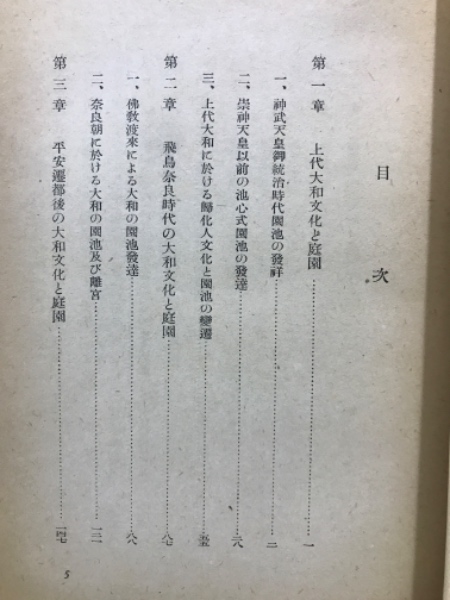 目次
第一章 上代大和文化と庭園……一
一、神武天皇御統治時代園池の發祥……二
二、崇神天皇以前の池心式園池の發達……二八
三、上代大和に於ける歸化人文化と園池の變遷……五五
第二章 飛鳥奈良時代の大和文化と庭園……八七
一、佛敎渡來による大和の園池發達……八八
二、奈良朝に於ける大和の園池及び離宮……一三一
第三章 平安遷都後の大和文化と庭園……一四七
5